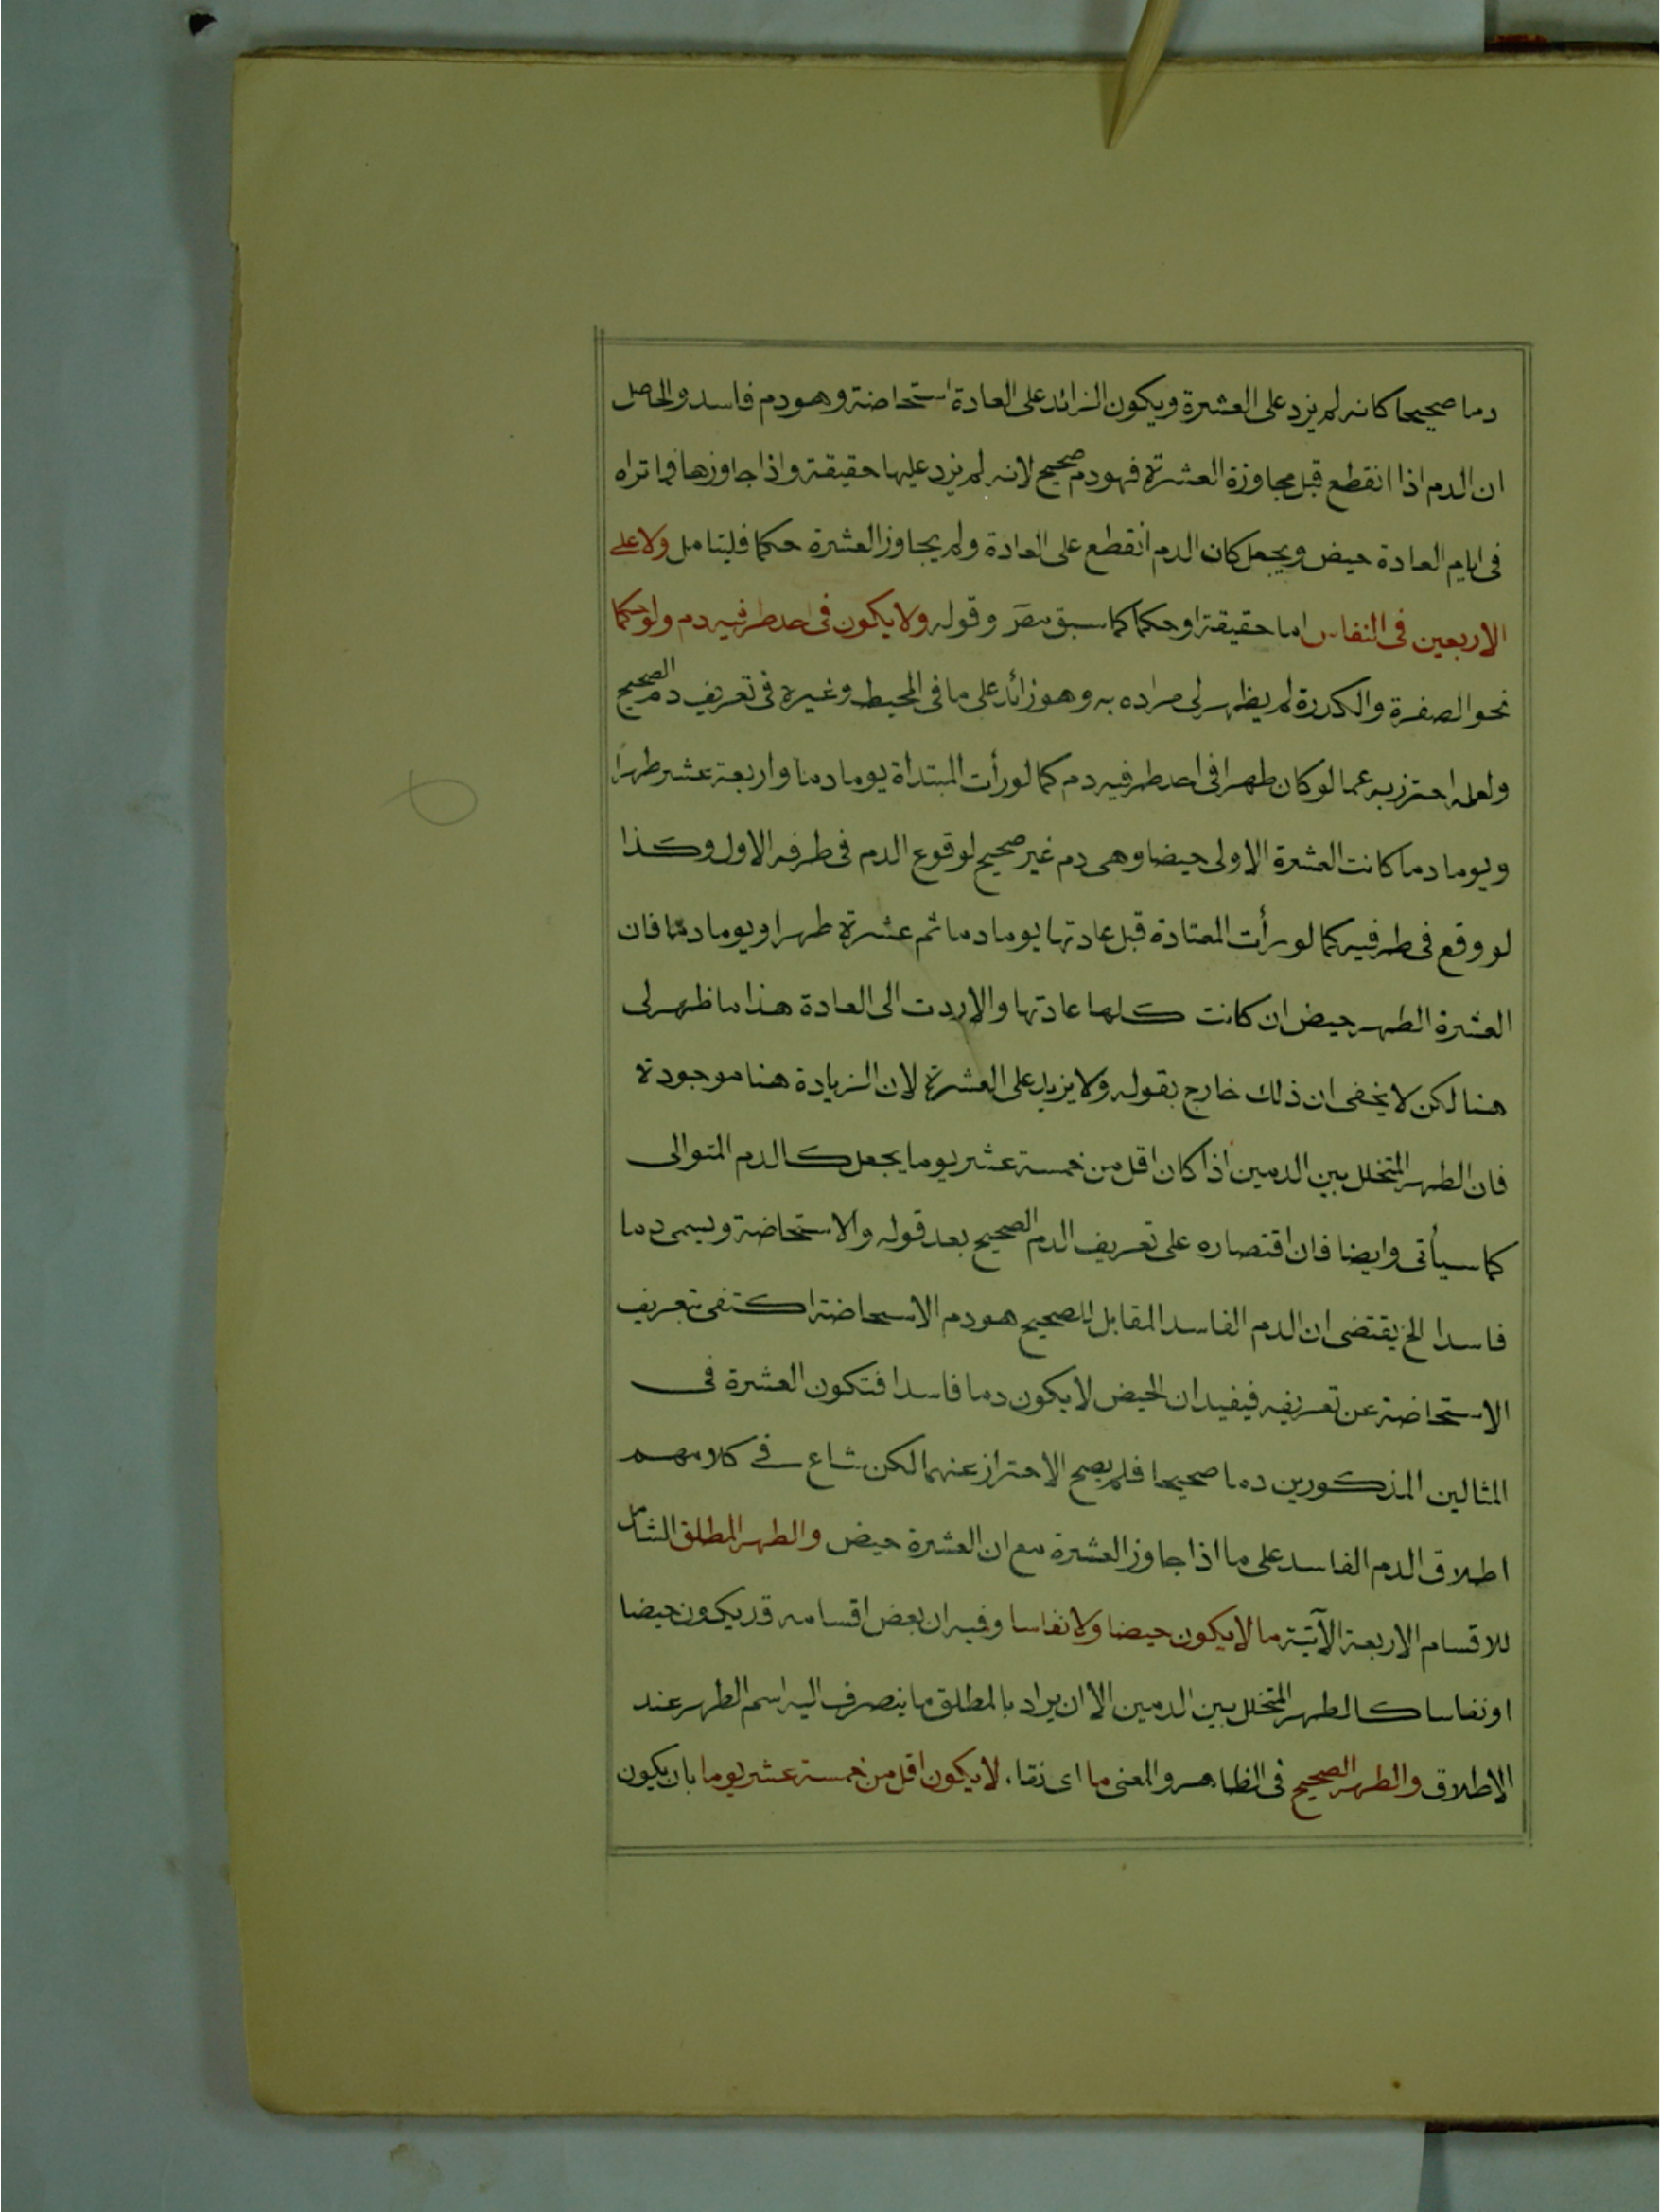 دما صحيحا كانه لم يزد على العشرة ويكون الزائد على العادة استحاضة وهو دم فاسد والحاصل
ان الدم اذا انقطع قبل مجاوزة العشرة فهو دم صحيح لانه لم يزد عليها حقيقة واذا جاوزها فما تراه
فى ايام العادة حيض ويجعل كان الدم انقطع على العادة ولم يجاوز العشرة حكما فليتامل ولا على
الاربعين فى النفاس اما حقيقة او حكما كما سبق وقوله ولا يكون فى احد طرفيه دم ولو حكما
نحو الصفرة والكدرة لم يظهر لى مراده به وهو زائد على ما فى المحيط وغيره فى تعريف دم الصحيح
ولعله احترز به عما لو كان طهرا فى احد طرفيه دم كما لو رأت المبتداة يوما دما واربعة عشر طهرا
ويوما دما كانت العشرة الاولى حيضا وهى دم غير صحيح لوقوع الدم فى طرفه الاول وكذا
لو وقع فى طرفيه كما لو رأت المعتادة قبل عادتها يوما دما ثم عشرة طهرا ويوما دما فان
العشرة الطهر حيض ان كانت كلها عادتها والا ردت الى العادة هذا ما ظهر لى
هنا لكن لا يخفى ان ذلك خارج بقوله ولا يزيد على العشرة لان الزيادة هنا موجودة
فان الطهر المتخلل بين الدمين اذا كان اقل من خمسة عشر يوما يجعل كالدم المتوالى
كما سيأتى وايضا فان اقتصاره على تعريف الدم الصحيح بعد قوله والاستحاضة ويسمى دما
فاسدا الخ يقتضى ان الدم الفاسد المقابل للصحيح هو دم الاسحاضة اكتفى بتعريف
الاستحاضة عن تعريفه فيفيد ان الحيض لا يكون دما فاسدا فتكون العشرة فى
المثالين المذكورين دما صحيحا فلم يصح الاحتراز عنهما لكن شاع فى كلامهم
اطلاق الدم الفاسد على ما اذا جاوز العشرة مع ان العشرة حيض والطهر المطلق الشامل
للاقسام الاربعة الآتية ما لا يكون حيضا ولا نفاسا وفيه ان بعض اقسامه قد يكون حيضا
او نفاسا كالطهر المتخلل بين الدمين الا ان يراد بالمطلق ما ينصرف اليه اسم الطهر عند
الاطلاق والطهر الصحيح فى الظاهر والمعنى ما اى نقاء لا يكون اقل من خمسة عشر يوما بان يكون